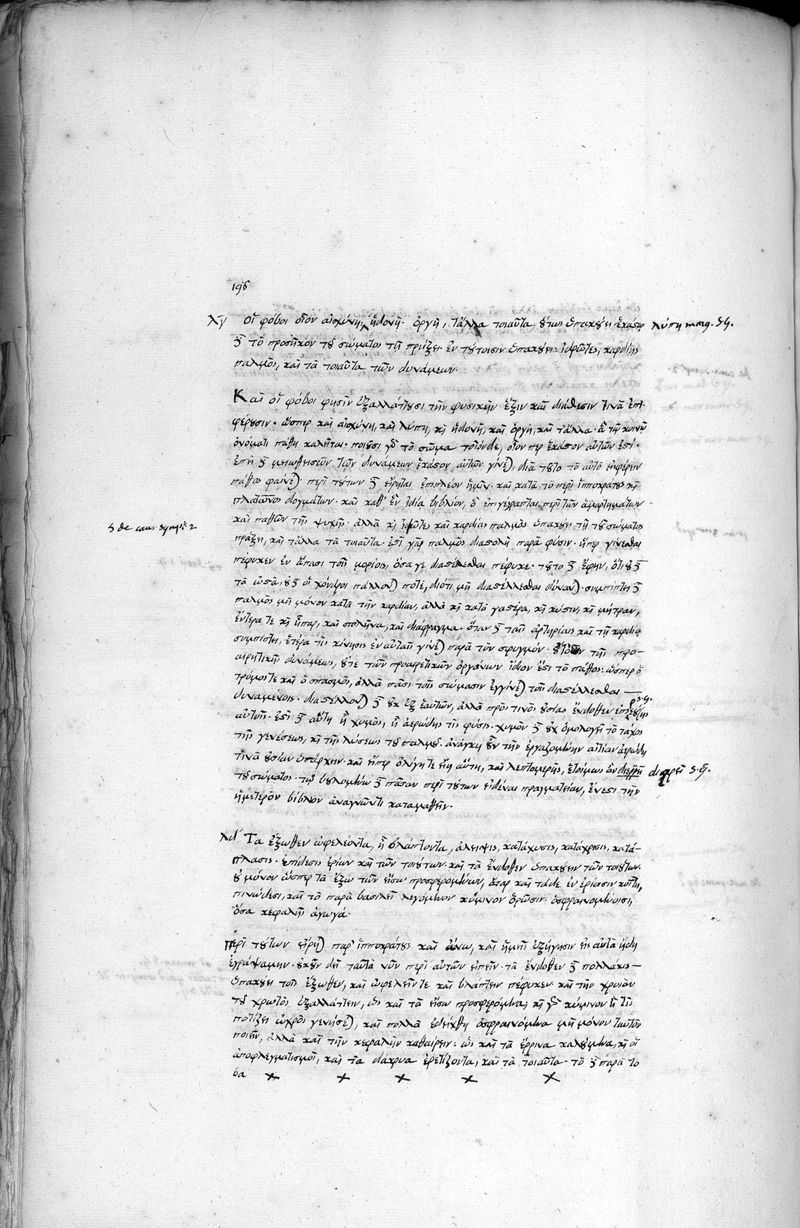 196
λγ οἱ φόβοι οἷον αἰσχύνη, ἡδονὴ. ὀργὴ, τἄλλα τοιαῦτα, οὕτως ὑπακούει ἑκάστῳ λύπη marg. sg.
δὲ τὸ προσῆκον τοῦ σώματος τῇ πρήξει ἐν τούτοισιν ὑπακούει. ἱδρῶτες, καρδίης
παλμὸς, καὶ τὰ τοιαῦτα τῶν δυνάμεων.
Καὶ οἱ φόβοι φησὶν ἐξαλλάττουσι τὴν φυσικὴν ἕξιν καὶ διάθεσιν τινὰ ἐπι
φέρουσιν. ὥσπερ καὶ αἰσχύνη, καὶ λύπη, καὶ ἡδονὴ, καὶ ὀργὴ, καὶ τἄλλα. ἃ τῇ κοινῷ
ὀνόματι πάθη καλῆται. ποιοῦσι γὰρ τὸ σῶμα τοιόνδε, οἷόν περ ἕκαστον αὐτῶν ἐστί.
δὲ μειωθεισῶν τῶν δυνάμεων ἕκαστον αὐτῶν γίνεται, διὰ τοῦτο τὸ αὐτὸ ἐπιφέρειν
πάθος φαίνεται περὶ τούτων δὲ εἴρηται ἐπιπλέον ἡμῖν. καὶ κατὰ τὸ περὶ ἱπποκράτους καὶ
πλάτωνος δογμάτων. καὶ καθ' ἓν ἰδίᾳ βιβλίον, ὃ ἐπιγέγραπται περὶ τῶν ἁμαρτημάτων
καὶ παθῶν τῆς ψυχῆς. ἀλλὰ καὶ ἱδρῶτες καὶ καρδίας παλμὸς ὑπακούει τῇ τοῦ σώματος
5 de caus. sympt. 2
πράξει, καὶ τἄλλα τὰ τοιαῦτα. ἐστὶ γὰρ παλμὸς διαστολὴ παρὰ φύσιν. ἥπερ γίνεσθαι
πέφυκεν ἐν ἅπασι τοῖς μορίοις, ὅσα γε διαστέλλεσθαι πέφυκε. τοῦτο δὲ ἔφην, ὅτι οὐδὲ
τὰ ὀστᾶ, οὐδὲ οἱ χόνδροι πάλλονταί ποτε, διότι μὴ διαστέλλεσθαι δύνανται. συμπίπτει δὲ
παλμὸς μὴ μόνον κατὰ τὴν καρδίαν, ἀλλὰ καὶ κατὰ γαστέρα, καὶ κύστιν, καὶ μήτραν,
ἔντερά τε καὶ ἧπαρ, καὶ σπλῆνα, καὶ διάφραγμα. ὅταν δὲ ταῖς ἀρτηρίαις καὶ τῇ καρδίᾳ
συμπίπτῃ, ἑτέρα τις κίνησις ἐν αὐταῖς γίνεται παρὰ τὸν σφυγμόν. τῆς προ-
αιρετικῆς δυνάμεως, οὔτε τῶν προαιρετικῶν ὀργάνων ἴδιον ἐστὶ τὸ πάθος. ὥσπερ ὁ
τρόμος τε καὶ ὁ σπασμὸς, ἀλλὰ πᾶσι τοῖς σώμασιν ἐγγίνεται τοῖς διαστέλλεσθαι —
δυναμένοις. διαστέλλονται δὲ οὐκ ἐξ ἑαυτῶν, ἀλλὰ πρός τινος οὐσίας ἔνδοθεν
αὐτοῖς. ἔστι δὲ αὕτη ἢ χυμὸς, ἢ ἀερώδης τις φύσις. χυμὸν δὲ οὐχ ὁμολογεῖ τὸ τάχος
τῆς γενέσεως, καὶ τῆς λύσεως τοῦ παλμοῦ. ἀνάγκη οὖν τὴν ἐργαζομένην αἰτίαν ἀερώδη
τινὰ οὐσίαν ὑπάρχειν. καὶ εἴπερ ὀλίγη τε εἴη αὕτη, καὶ λεπτομερὴς, ἑτοίμως ἂν διαρρεῖ s.g.
τοῦ σώματος. τῷ βουλομένῳ δὲ πᾶσαν περὶ τούτων εἰδέναι πραγματείαν, ἔνεστι τὴν
ἡμέτερον βίβλον ἀναγνῶντι καταμαθεῖν.
λδ Τὰ ἔξωθεν ὠφελέοντα, ἢ βλάπτοντα, ἄλειψις, κατάχυσις, κατάχρισις, κατά-
πλασις. ἐπίδεσις ἐρίων καὶ τῶν τοιούτων. καὶ τὰ ἔνδοθεν ὑπακούει τῶν τοιούτων.
οὐ μόνον ὥσπερ τὰ ἔξω τῶν εἴσω προσφερομένων, ἀτὰρ καὶ τάδε ἐν ἐρίοισιν
πινώδεσι, καὶ τὸ παρὰ βασιλεῖ λεγόμενον κύμινον ὁρῶσιν. ὀσφραινομένοισι,
ὅσα κεφαλῆς ἀγωγά.
Περὶ τούτων εἴρηται παρ' ἱπποκράτους καὶ ἄνω, καὶ ἡμεῖς ἐξήγησιν εἰς αὐτὰ ἤδη
ἐγράψαμεν. οὐκοῦν δεῖ ταῦτα νῦν περὶ αὐτῶν εἰπεῖν. τὰ ἔνδοθεν δὲ πολλάκις —
ὑπακούει τοῖς ἔξωθεν, καὶ ὠφελεῖν τε καὶ βλάπτειν πέφυκεν καὶ τὴν χροιὸν
τοῦ χρωτὸς ἐξαλλάττειν, ὡς καὶ τὰ εἴσω προσφερόμενα, καὶ γὰρ κύμινον εἴ τις
ποτίζει ὠχρὸς γενήσεται, καὶ πολλὰ ἐδείχθη ὀσφραινόμενα μὴ μόνον ταυτὸν
ποιεῖν, ἀλλὰ καὶ τὴν κεφαλὴν καθαίρειν. ὡς καὶ τὰ ἔρρινα καλούμενα, καὶ οἱ
ἀποφλεγματισμοὶ, καὶ τὰ δάκρυα ἐρεθίζοντα, καὶ τὰ τοιαῦτα. τὸ δὲ παρὰ το
βα × × × × ×